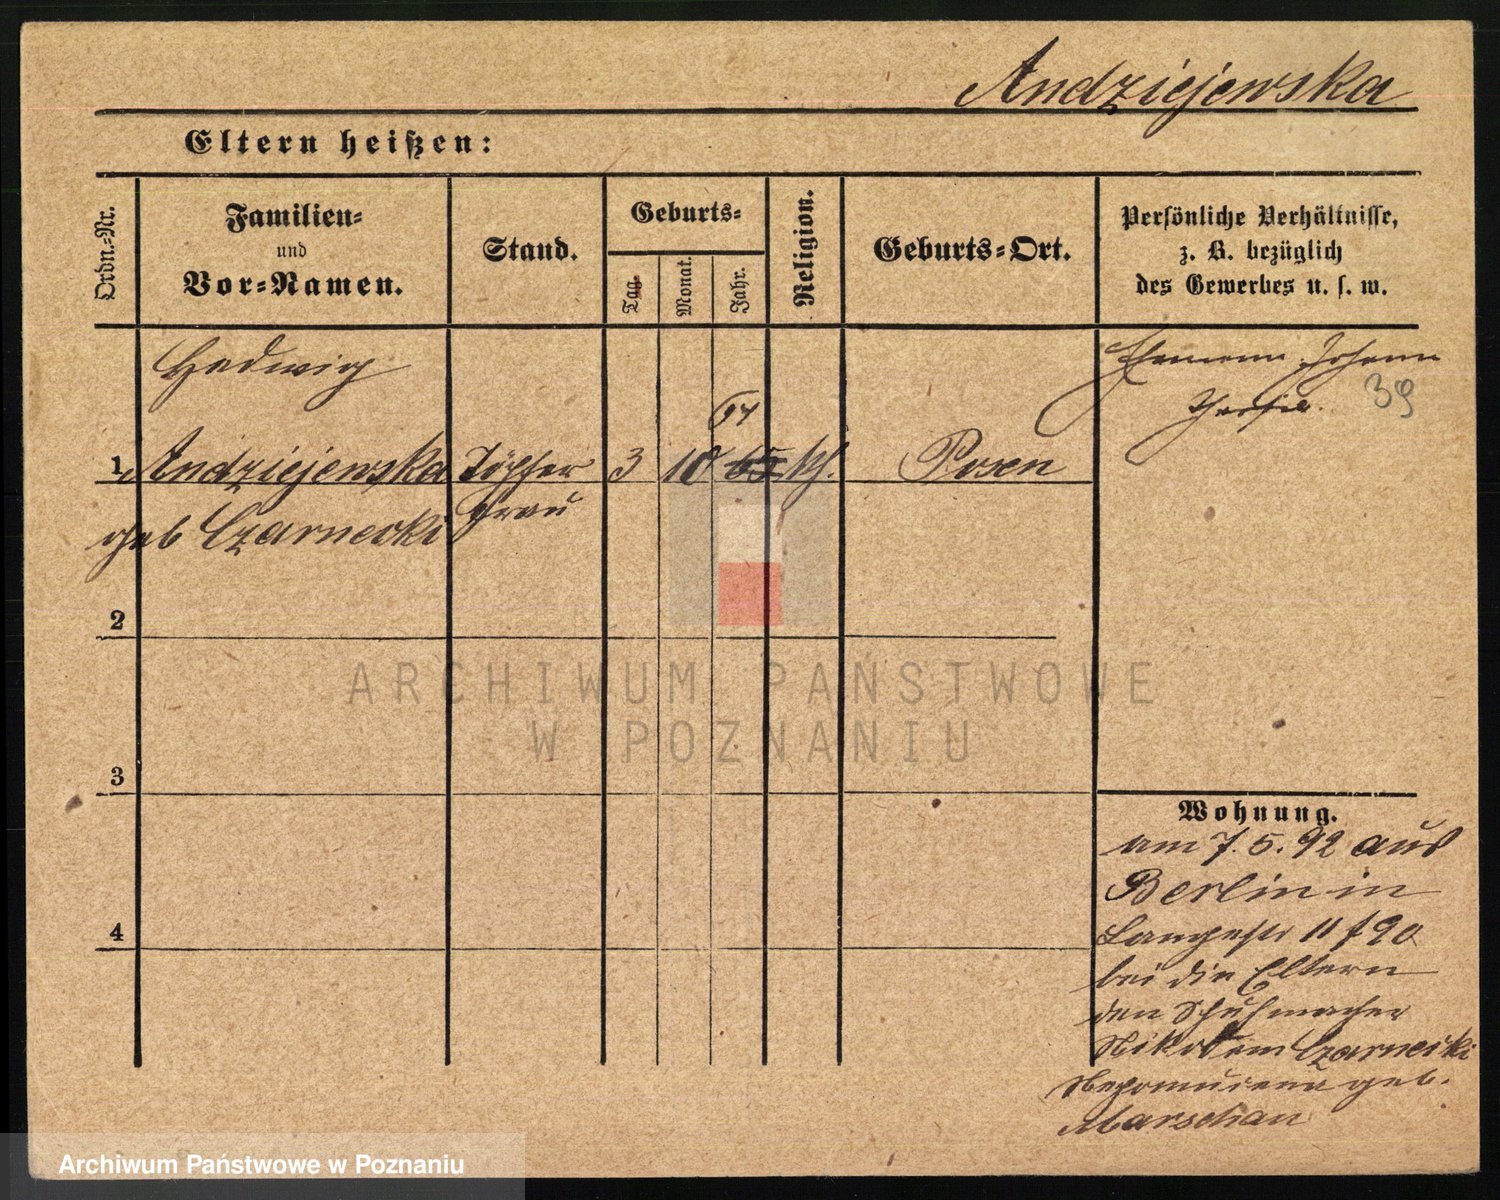 Andziejewska
Eltern heißen:
Ordn.-Nr.
Familien-
und
Vor-Namen.
Stand.
Geburts-
Tag.
Monat.
Jahr.
Religion.
Geburts-Ort.
Persönliche Verhältnisse,
z. B. bezüglich
des Gewerbes u. s. w.
Hedwig
Ehemann Johann
39
64
1 Andziejewska Töpfer 3 10 65 kth. Posen
geb Czarnecki frau
2
3
4
Wohnung.
am 7.5.92 aus
Berlin in
Langestr 11 f 90
bei die Eltern
den Schuhmacher
Nikodem Czarnecki
Nepomucena geb.
Marschan
ARCHIWUM PAŃSTWOWE
W POZNANIU
Archiwum Państwowe w Poznaniu